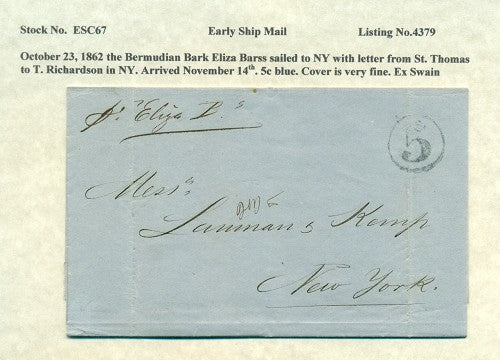 Stock No.  ESC67 Early Ship Mail Listing No.4379
October 23, 1862 the Bermudian Bark Eliza Barss sailed to NY with letter from St. Thomas
to T. Richardson in NY. Arrived November 14th. 5c blue. Cover is very fine. Ex Swain
pr "Eliza B."
5
Messrs
Lanman & Kemp
New York.